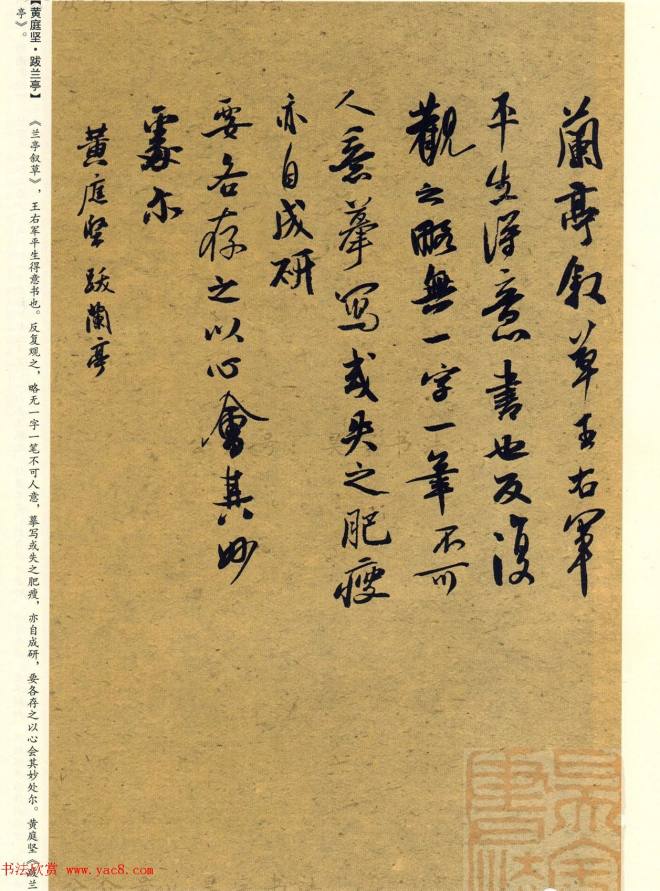 蘭亭叙草王右軍
平生得意書也反復
觀之略無一字一筆不可
人意摹寫或失之肥瘦
亦自成研
要各存之以心會其妙
處尔
黄庭坚跋蘭亭
【黄庭坚·跋兰亭】
《兰亭叙草》，王右军平生得意书也。反复观之，略无一字一笔不可人意，摹写或失之肥瘦，亦自成研，要各存之以心会其妙处尔。黄庭坚《跋兰
亭》。
书法欣赏 www.yac8.com